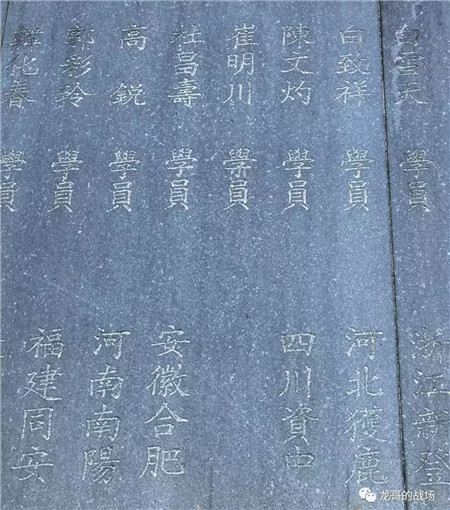 雪天 學員 浙江新登
白致祥 學員 河北獲鹿
陳文灼 學員 四川資中
崔明川 學員
杜昌壽 學員 安徽合肥
高銳 學員 河南南陽
郭彩玲 學員 福建同安
韓化春 學員
龙哥的战场